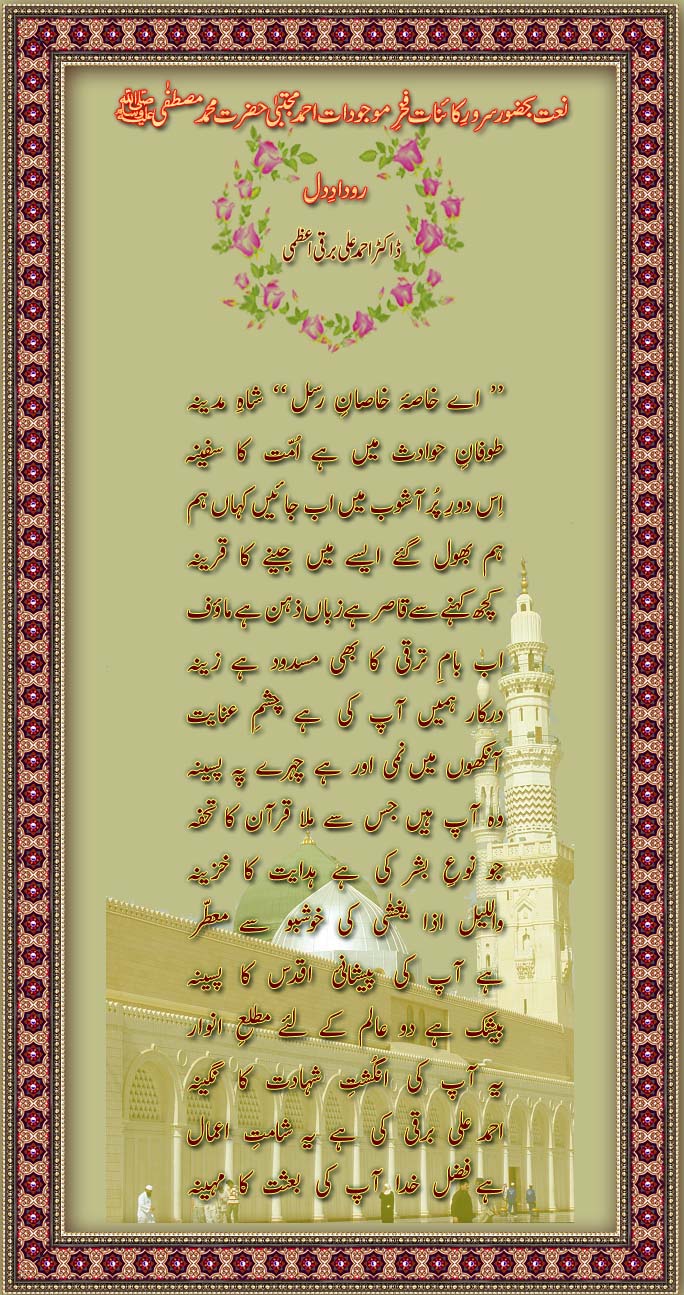 نعت بحضور سرورِ کائنات فخرِ موجودات احمد مجتبیٰ حضرت محمد مصطفٰی ﷺ
رودادِ دل
ڈاکٹر احمد علی برقی اعظمی
’’ اے خاصۂ خاصانِ رسل ‘‘ شاہِ مدینہ
طوفانِ حوادث میں ہے اُمّت کا سفینہ
اِس دورِ پُر آشوب میں اب جائیں کہاں ہم
ہم بھول گئے ایسے میں جینے کا قرینہ
کچھ کہنے سے قاصر ہے زباں ذہن ہے ماؤف
اب بامِ ترقی کا بھی مسدود ہے زینہ
درکار ہمیں آپ کی ہے چشمِ عنایت
آنکھوں میں نمی اور ہے چہرے پہ پسینہ
وہ آپ ہیں جس سے ملا قرآن کا تحفہ
جو نوعِ بشر کی ہے ہدایت کا خزینہ
واللیل اذا یغشٰی کی خوشبو سے معطّر
ہے آپ کی پیشانیٔ اقدس کا پسینہ
بیشک ہے دو عالم کے لئے مطلعِ انوار
یہ آپ کی انگُشتِ شہادت کا نگینہ
احمد علی برقی کی ہے یہ شامتِ اعمال
ہے فضل خدا آپ کی بعثت کا مہینہ